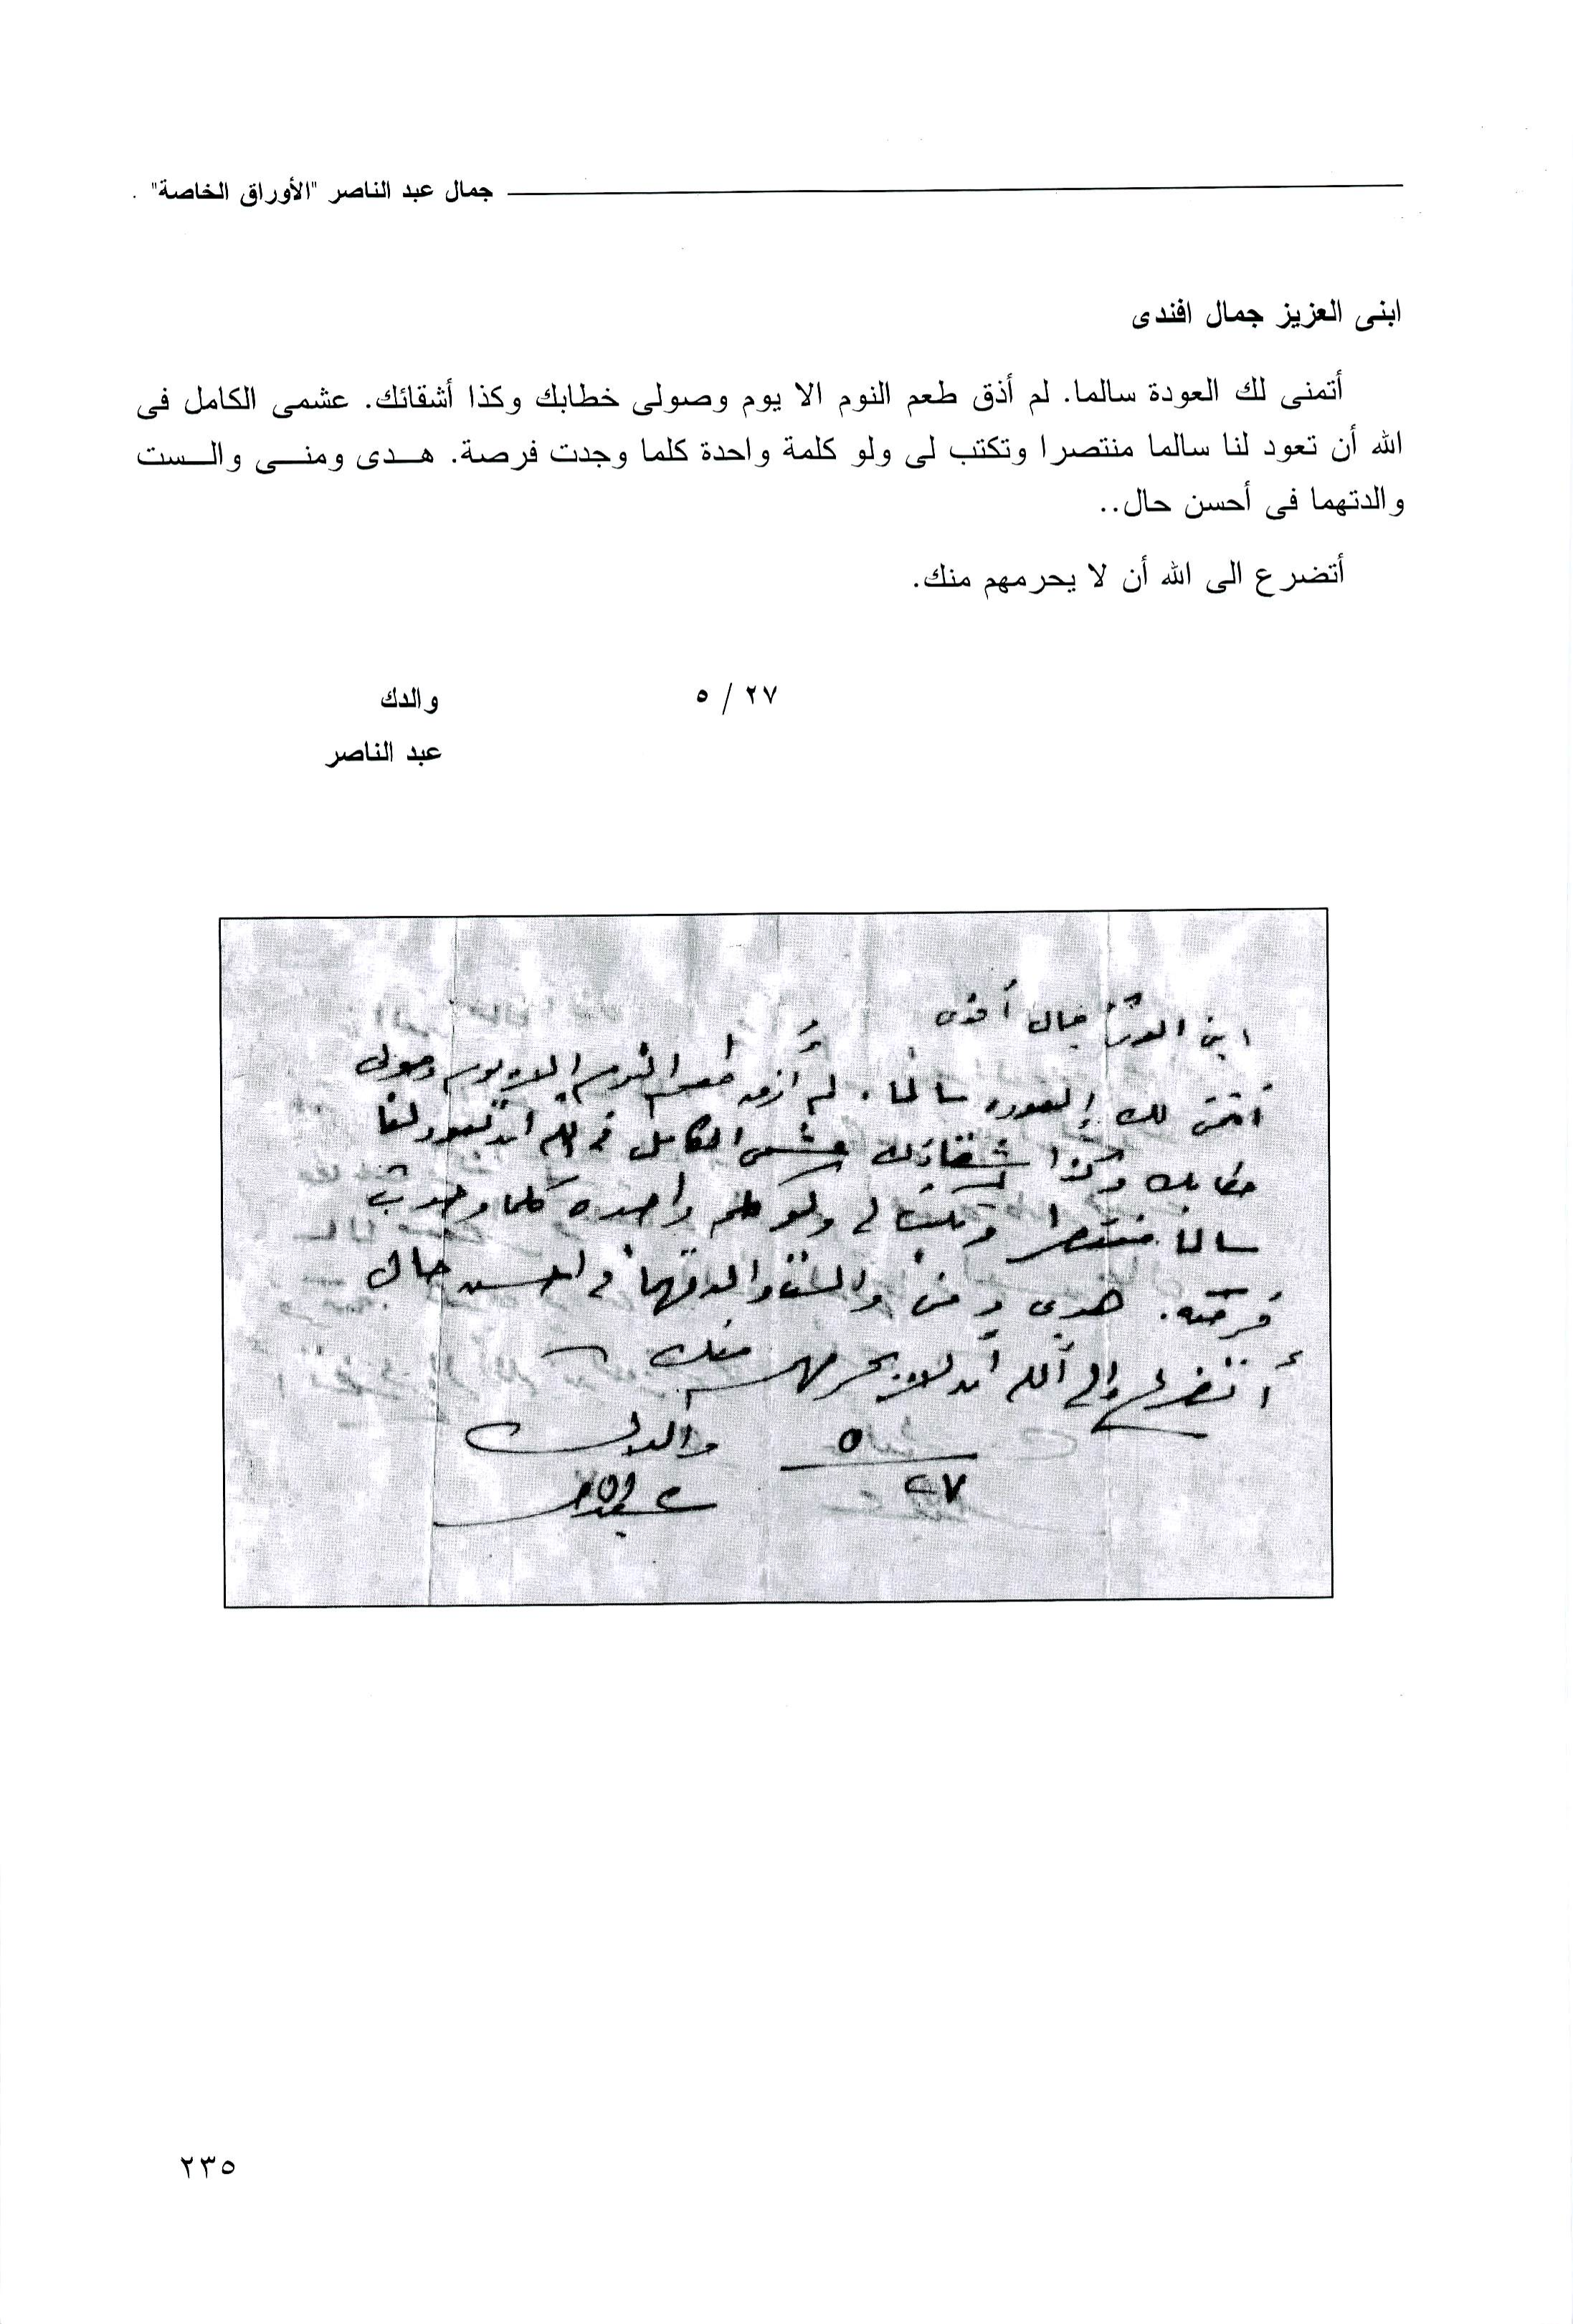 جمال عبد الناصر "الأوراق الخاصة"
ابنى العزيز جمال افندى
أتمنى لك العودة سالما. لم أذق طعم النوم الا يوم وصولى خطابك وكذا أشقائك. عشمى الكامل فى
الله أن تعود لنا سالما منتصرا وتكتب لى ولو كلمة واحدة كلما وجدت فرصة. هدى ومنى والست
والدتهما فى أحسن حال..
أتضرع الى الله أن لا يحرمهم منك.
٢٧ / ٥ والدك
عبد الناصر
ابنى العزيز جمال أفندى
أتمنى لك العوده سالما. لم أذق طعم النوم إلا يوم وصولى
خطابك وكذا أشقائك عشمى الكامل فى الله أن تعود لنا
سالما منتصرا وتكتب لى ولو كلمه واحده كلما وجدت
فرصه. هدى ومنى والست والدتهما فى أحسن حال
أتضرع إلى الله أن لا يحرمهم منك
٥ والدك
٢٧
٢٣٥